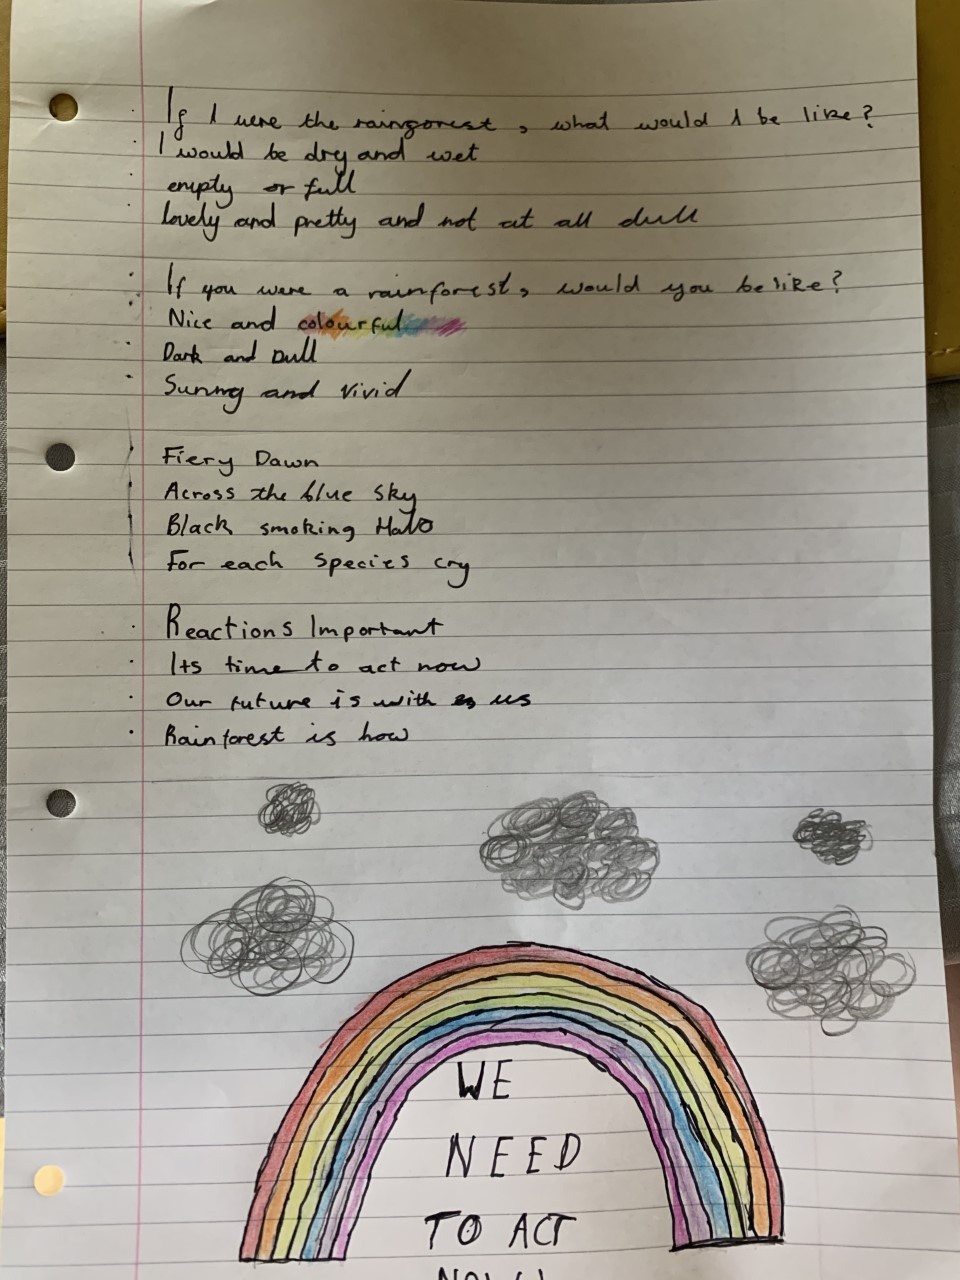 If I were the rainforest, what would I be like?
I would be dry and wet
empty or full
lovely and pretty and not at all dull
If you were a rainforest, would you be like?
Nice and colourful
Dark and Dull
Sunny and Vivid
Fiery Dawn
Across the blue sky
Black smoking Halo
For each species cry
Reactions Important
Its time to act now
Our future is with us
Rainforest is how
WE
NEED
TO ACT